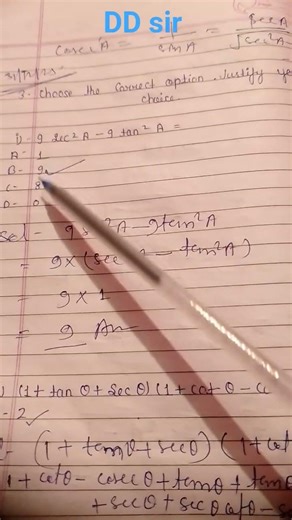 DD sir
cosec A = 1/sin A = sec A/√sec²A -
3- choose the correct option. Justify yo
choice
i)- 9 sec²A - 9 tan²A =
A- 1
B- 9
C- 8
D- 0
sol- 9 s ²A - 9 tan²A
= 9 × (sec² - tan²A)
= 9 × 1
= 9 Ans
) (1 + tan θ + sec θ) (1 + cot θ - c
- 2 ✓
(1 + tan θ + sec θ) (1 + cot
1 + cot θ - cosec θ + tan θ + tan
+ sec θ + sec θ cot θ - s